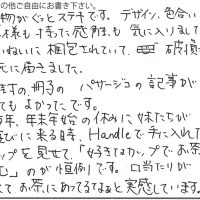 の他ご自由にお書き下さい。
物がぐっとステキです。デザイン、色合い
も持った感触も気に入りまし
ねいに梱包されていて、破損
元に届きました。
の冊子の パサージュの記事が
てもよかったです。
年、年末年始の休みに妹たちが
びに来る時、Handleで手に入れた
ップを見せて「好きなカップでお茶
む」のが恒例です。口当たりが
てお茶にあってるなぁと実感しています。